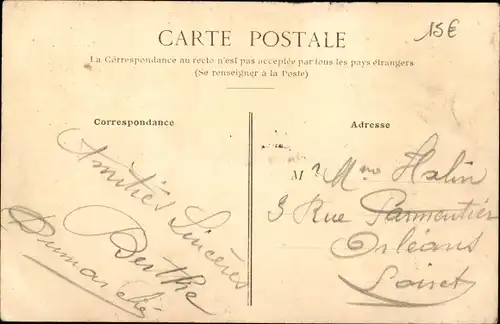 15€
CARTE POSTALE
La Correspondance au recto n'est pas acceptée par tous les pays étrangers
(Se renseigner à la Poste)
Correspondance
Adresse
Amitiés Sincères
Berthe
Dumarché
M
Halin
3 Rue Parmentier
Orléans
Loiret